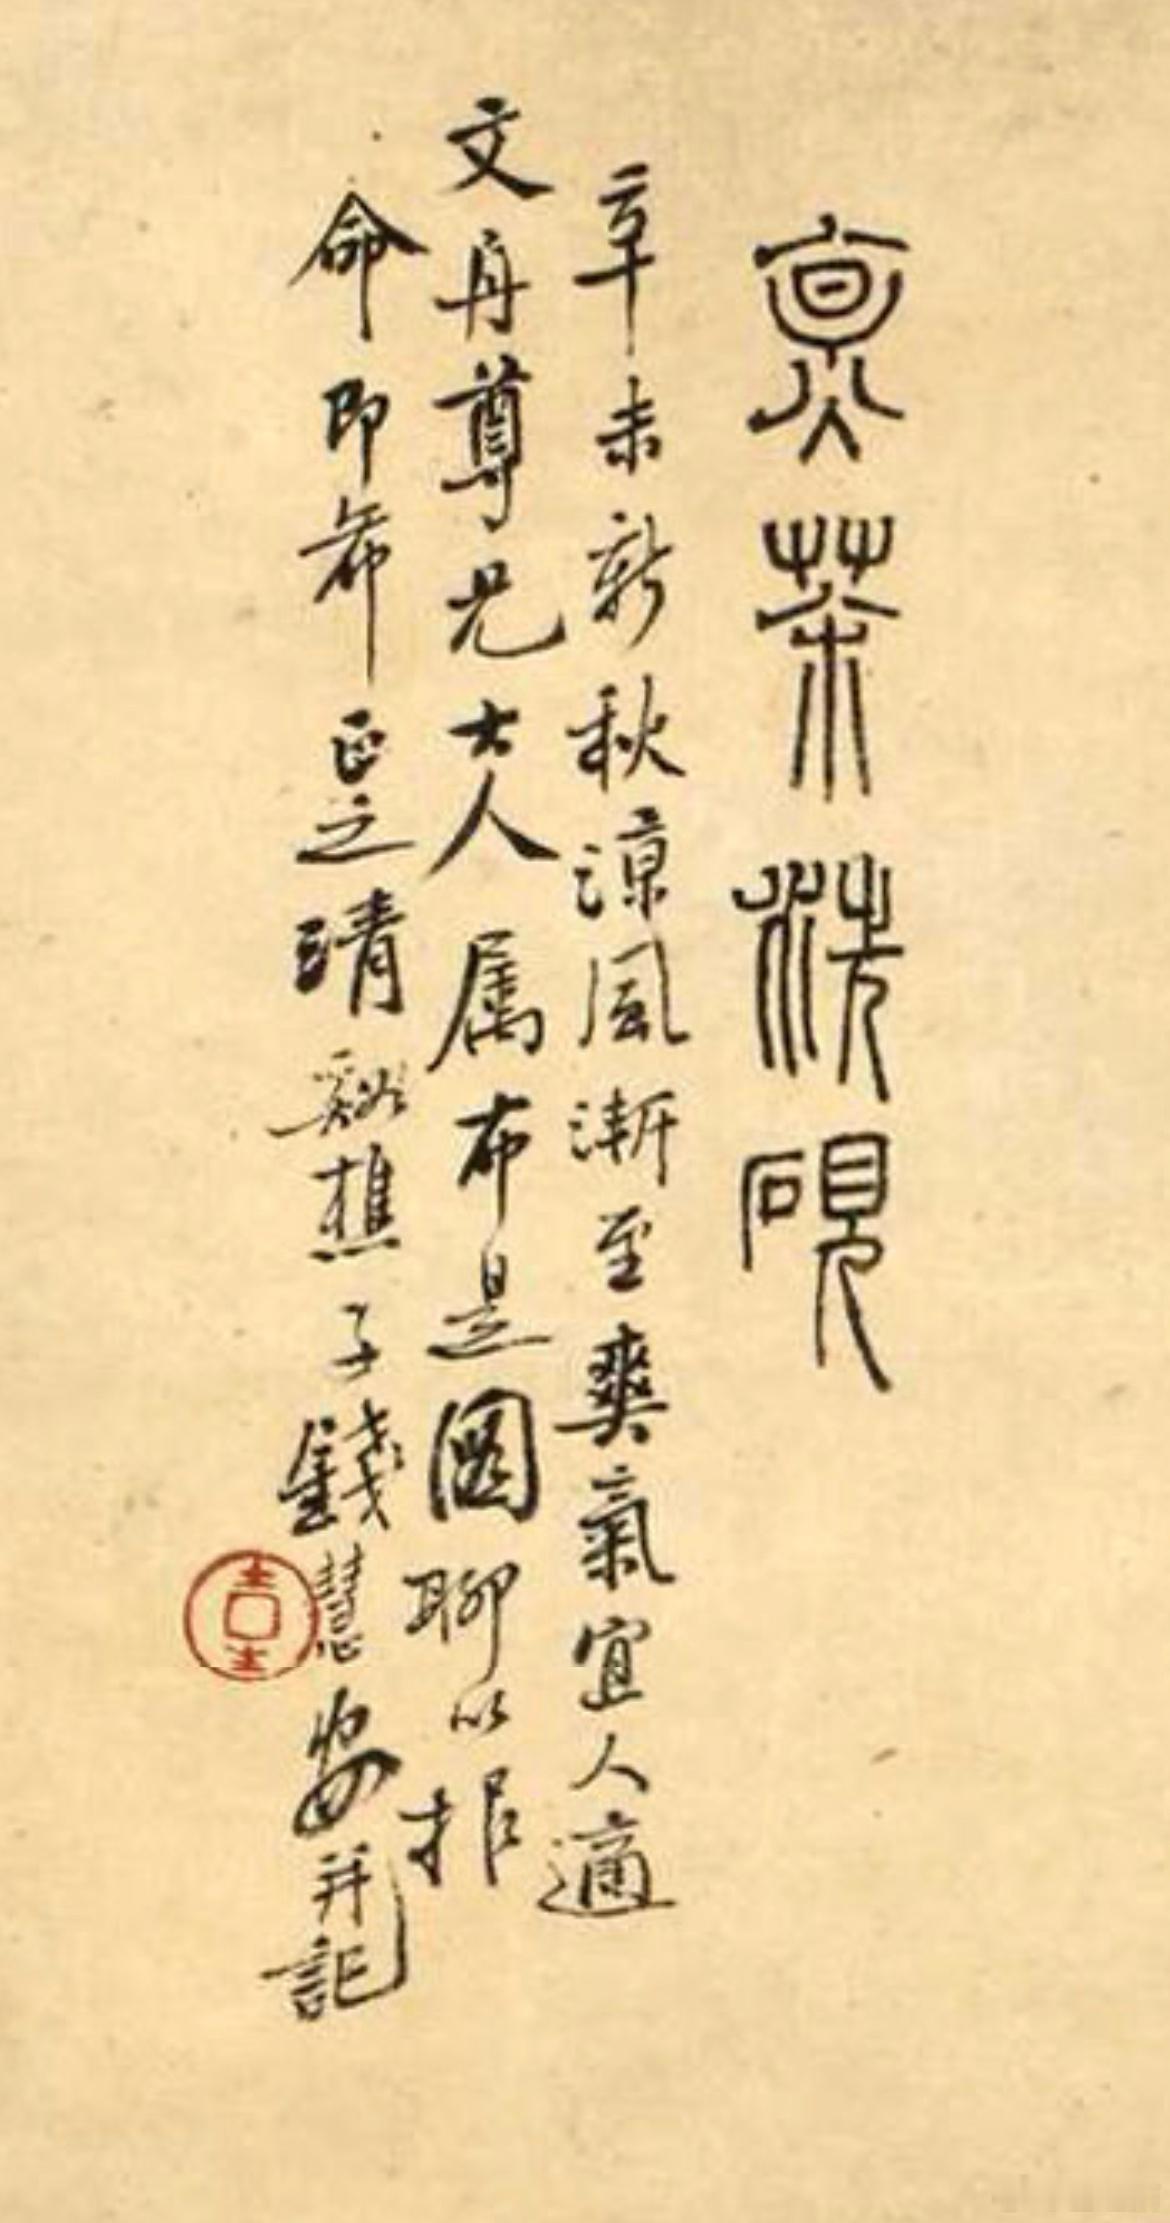 烹茶洗硯
辛未新秋涼風漸至爽氣宜人適
文舟尊兄大人属布是圖聊以报
命即希正之清谿樵子錢慧安并記